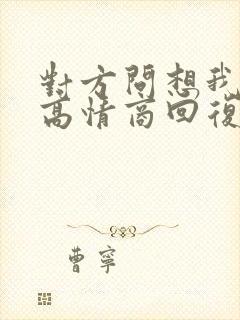 對方問想我
高情商回復
曹寧